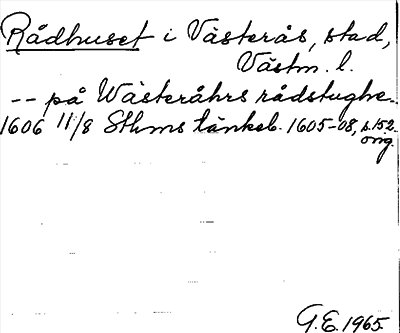 Rådhuset i Västerås, stad,
Västm. l.
-- på Wästeråhrs rådstughe..
1606 11/8 Sthms tänkeb. 1605-08, s.152.
orig.
G.E. 1965.